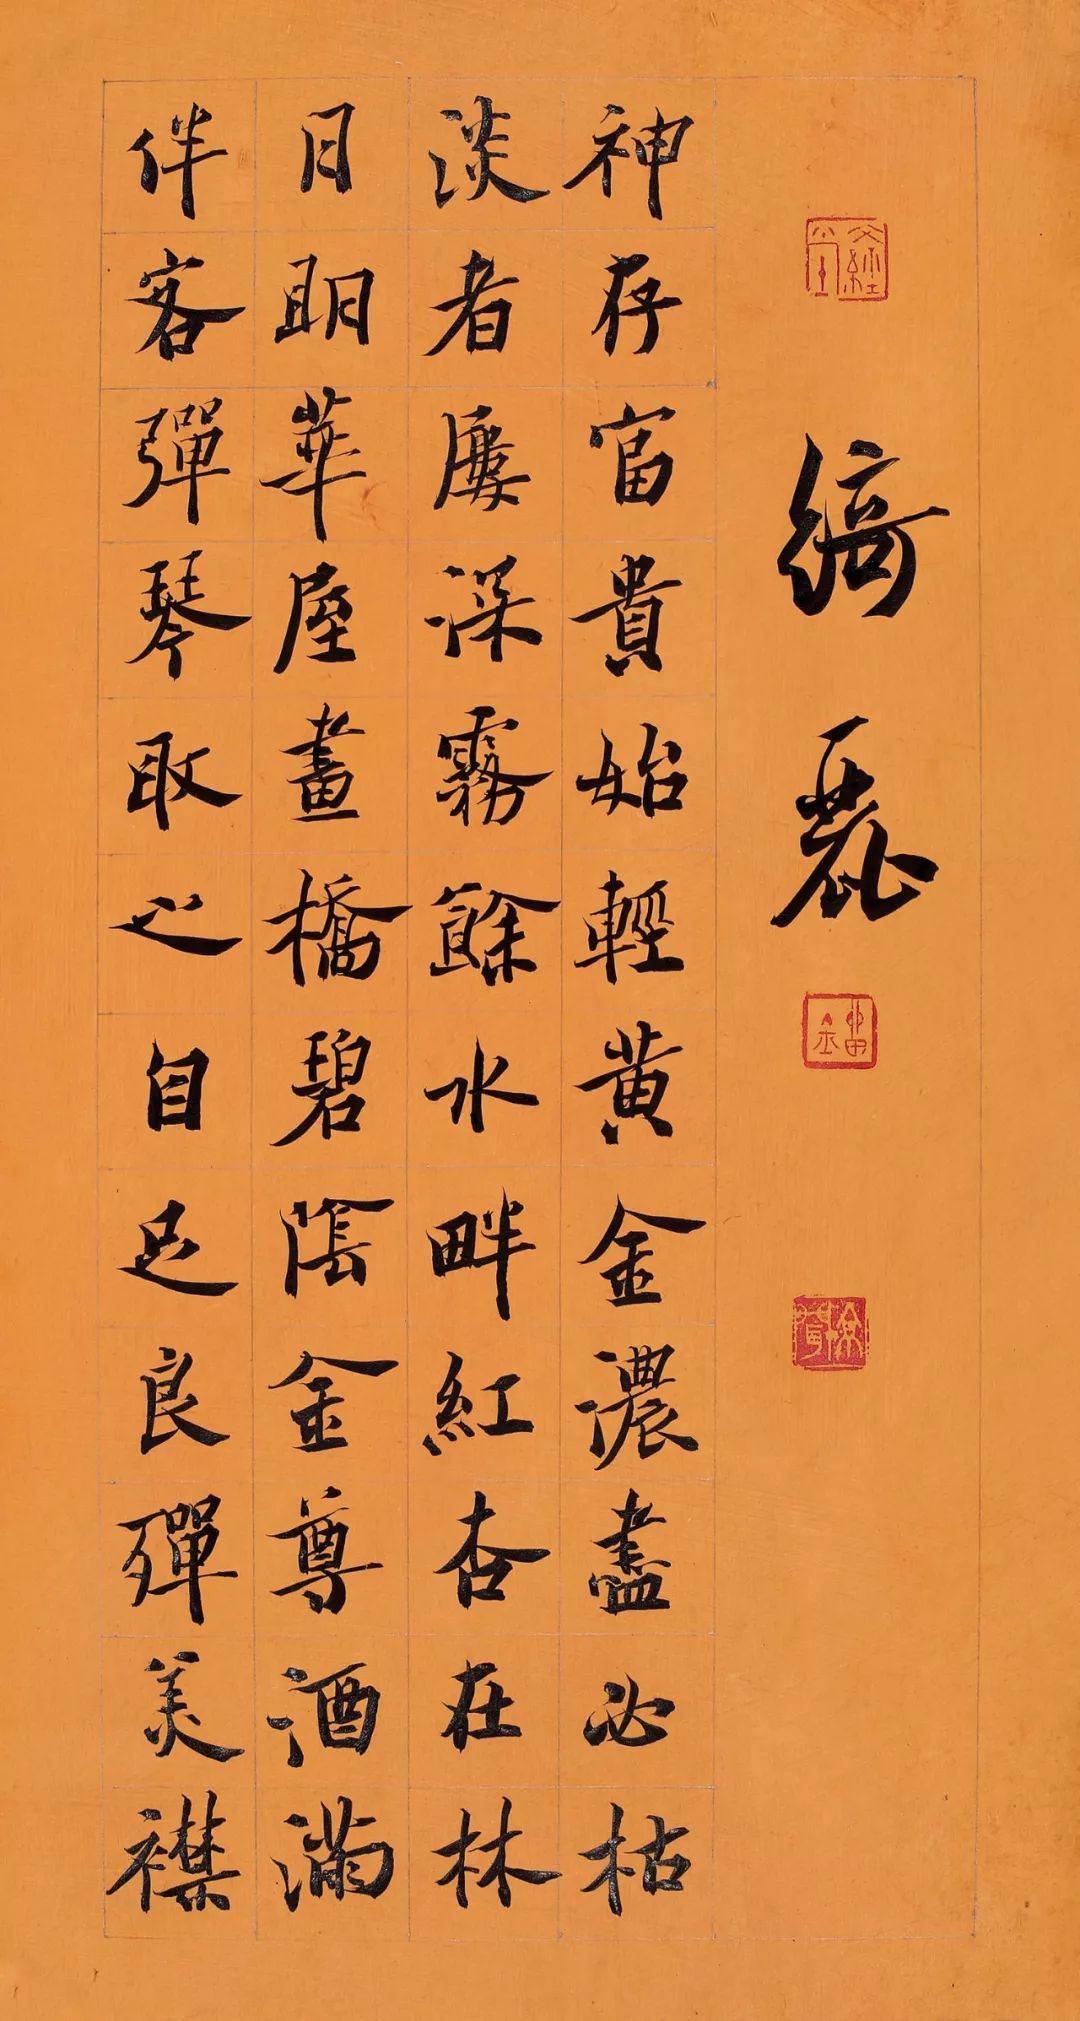 綺麗
神存富貴始輕黄金濃盡必枯
淡者屢深霧餘水畔紅杏在林
月明華屋畫橋碧陰金尊酒滿
伴客彈琴取之自足良殫美襟